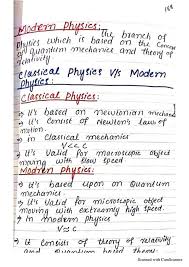 168
Modern Physics:
is the branch of
Physics which is based on the Concept
of Quantum mechanics and theory of
relativity
Classical Physics V/s Modern
Physics:
Classical Physics:
→ It's based on newtonian mechanics
→ It Consist of Newton's laws of
motion.
→ in Classical mechanics
V<<C
→ It's Valid for macroscopic object
moving with slow speed
Modren physics:
→ It's based upon on Quantum
mechanics
→ It's Valid for microscopic object
moving with extremly high speed.
→ In Modren physics
V≃C
→ It Consists of theory of relativity
and Quantum
Scanned with CamScanner